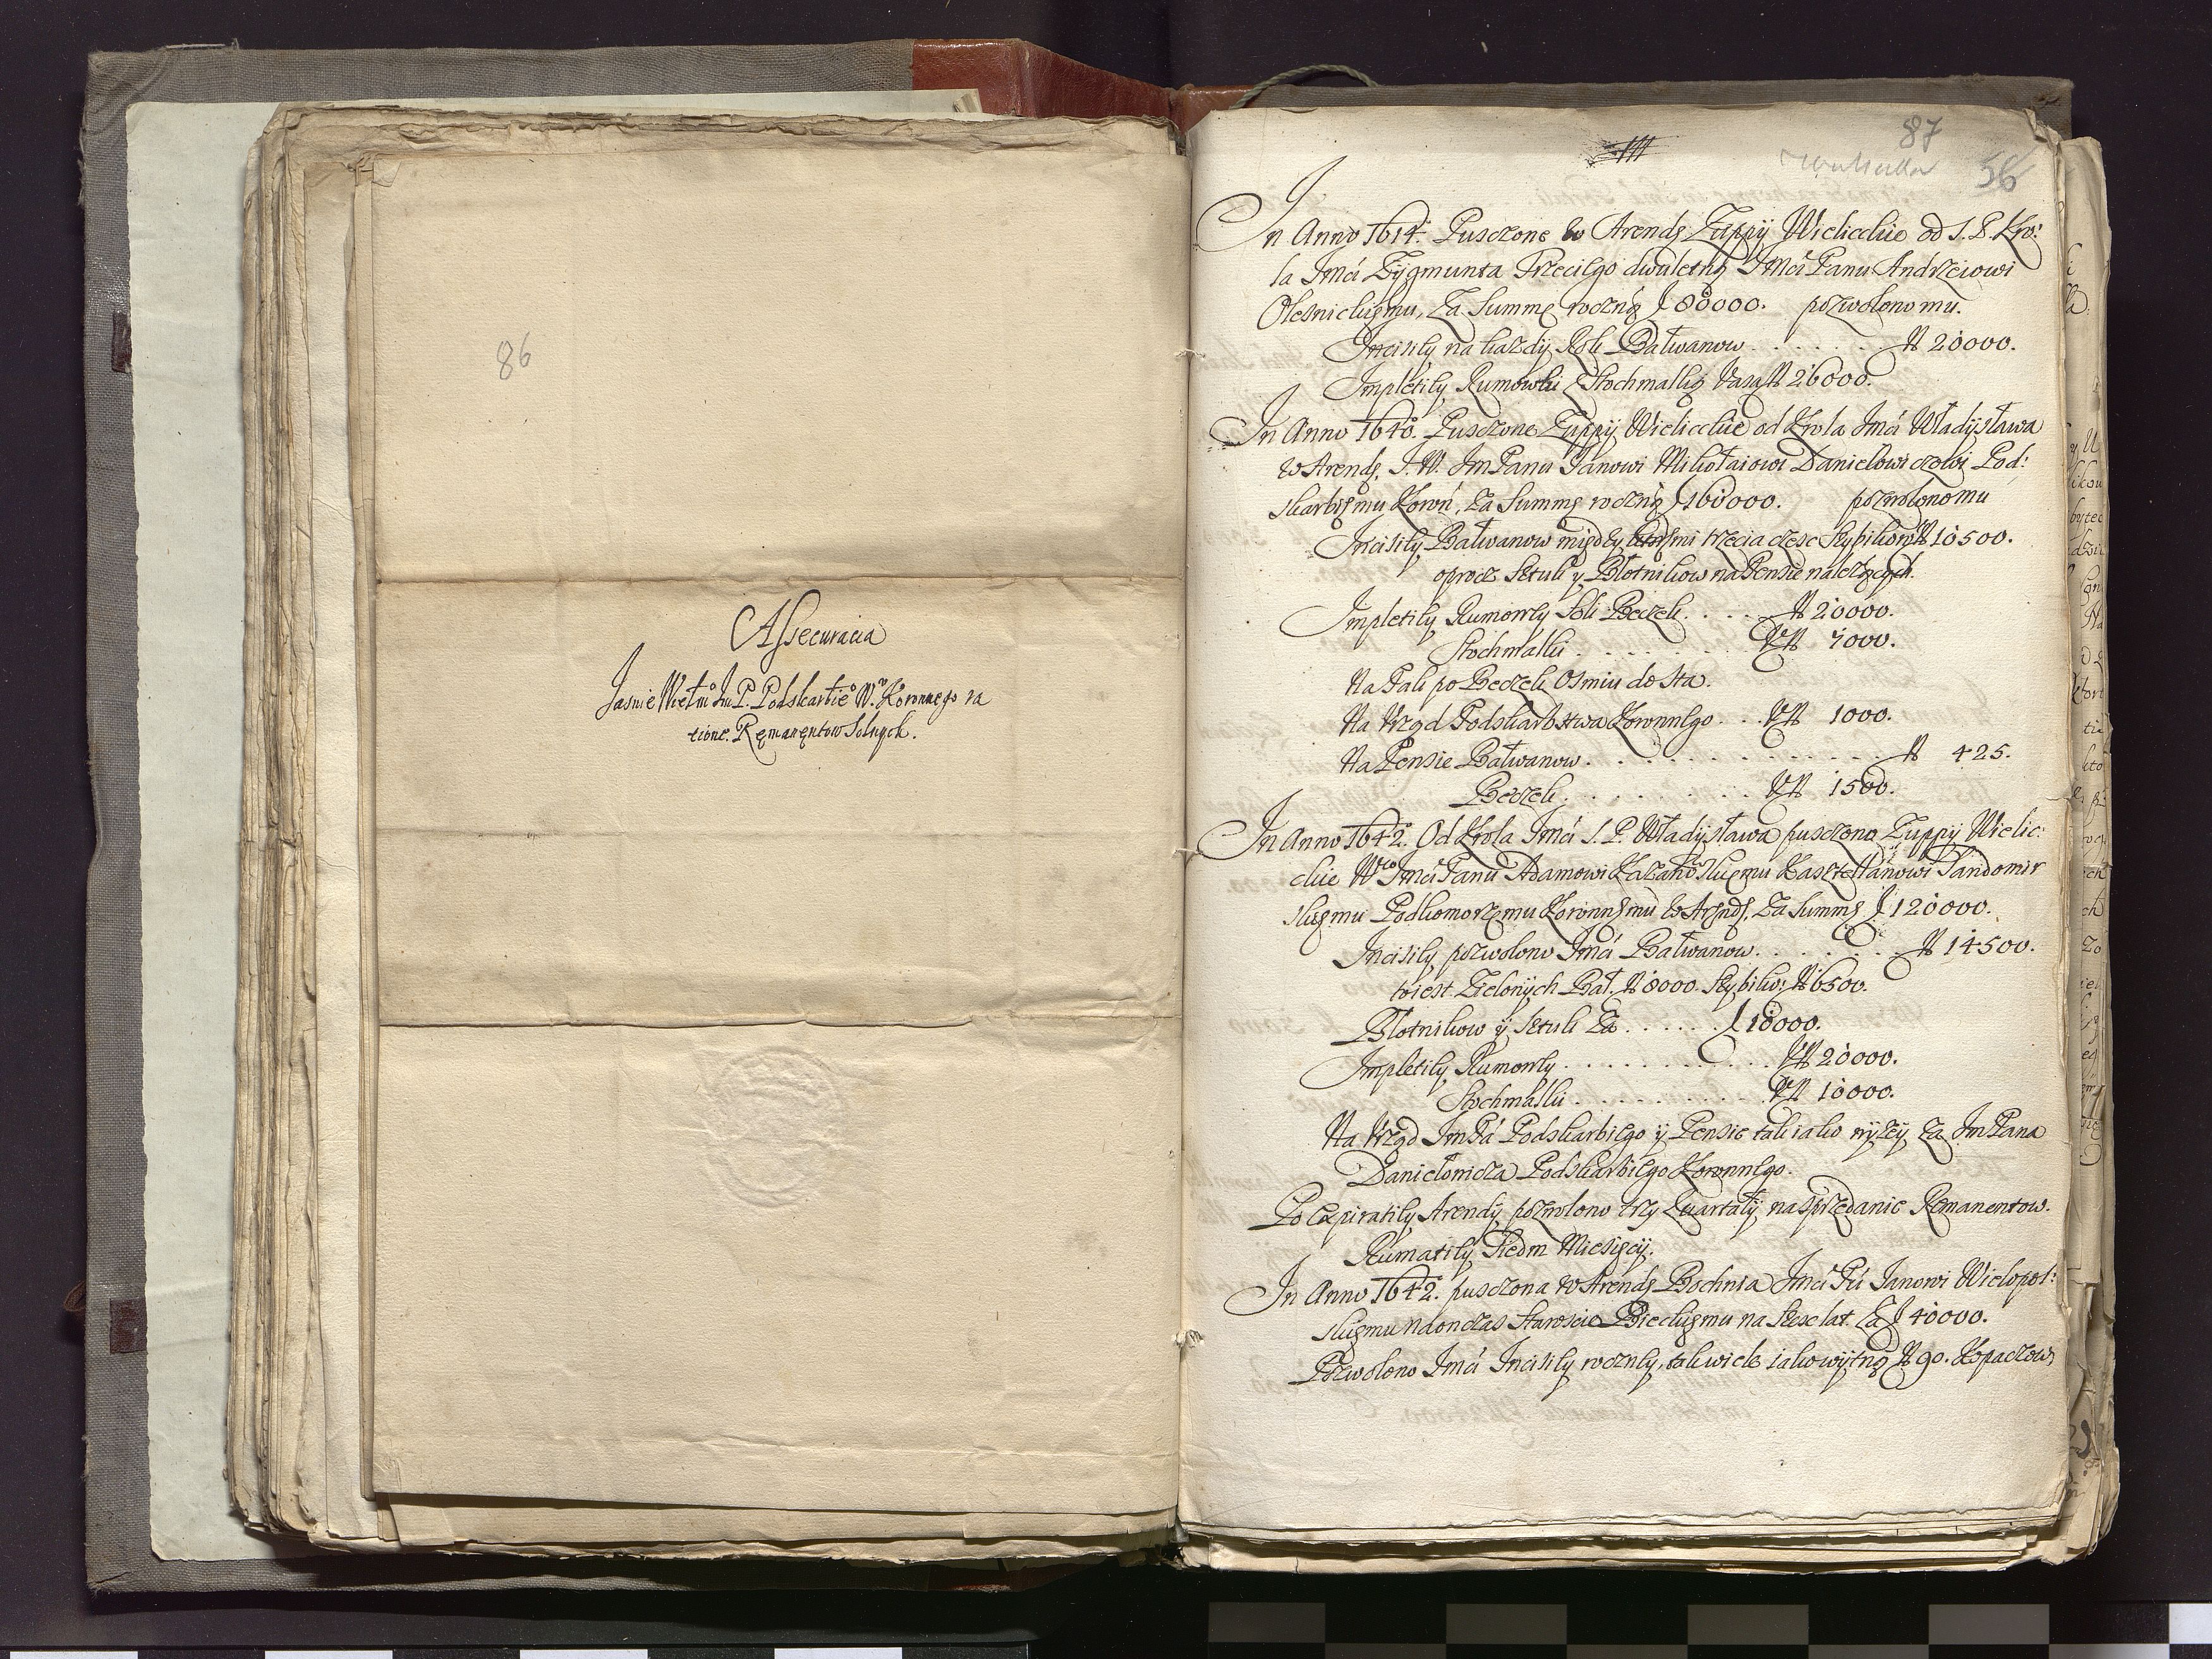 86
Assecuracia
Jasnie Wielmo Im P. Podskarbie° Wo Koronnego ra
tione Remanentow Solnych.
87
56
In Anno 1614. Pusczone w Arendę Zuppÿ Wielickie od S. P. Kro:
la Imci Zÿgmunta Trzeciego dwuletnę ImciPanu Andrzeiowi
Olesnickięmu, Za Summę rocznę f 80000. pozwolono mu.
Incisily na kazdÿ Rok Bałwanow . . . . . . . N 20000.
Impletily Rumowki Stochmalkę Vasa N 26000.
In Anno 1640. Pusczone Zuppÿ Wielickie od Krola Imci Władÿsława
w Arendę, J. W. ImPanu Janowi Mikołaiowi Daniełowiczowi Pod:
skarbięmu Koron, Za Summę rocznę f 160000. pozwolono mu
Incisily Bałwanow międzÿ ktoręmi trzecia czesc Szybikow N 10500.
oprocz Sztuk y Błotnikow na Pensie nalezęcych.
Impletily Rumowey Soli Beczek . . . . N 20000.
Stochmalki . . . . . . . . VN 7000.
Na Pali po Beczek Osmiu do sta.
Na Vrzad Podskarbstwa Koronnego . . . VN 1000.
Na Pensie Bałwanow . . . . . . . . . . . . . . N 425.
Beczek . . . . . . . . . VN 1500.
In Anno 1642. Od Krola Imci S. P. Władÿsława pusczono Zuppÿ Wielic:
ckie Wmo ImciPanu Adamowi Kazanowskięmu Kasztellanowi Sandomir
skięmu Podkomorzęmu Koronnęmu w Aręndę, Za Summę f 120000.
Incisily pozwolono Imci Bałwanow . . . . . . . N 14500.
to iest Zielonÿch Bał. N 8000. Szybikw: N 6500.
Błotnikow ÿ Sztuk Za . . . . . . f 10000.
Impletily Rumowey . . . . . . . . . . . . VN 20000.
Stochmalki . . . . . . . . . . VN 10000.
Na Vrzad ImPa Podskarbiego ÿ Pensie tak iako wÿzeÿ za ImPana
Daniełowicza Podskarbiego Koronnego.
Po Expiratiÿ Arendÿ, pozwolono trzy Kwartałÿ na sprzedanie Remanentow.
Rumatiÿ Siedm Miesięcÿ.
In Anno 1642. pusczona w Arendę Bochnia Imci Pu Janowi Wielopol:
skięmu naonczas Staroscie Bieckięmu na szesc lat Za f 40000.
Pozwolono Imci Incisily roczneÿ, tak wiele iako wÿtnę N 90. Kopaczow